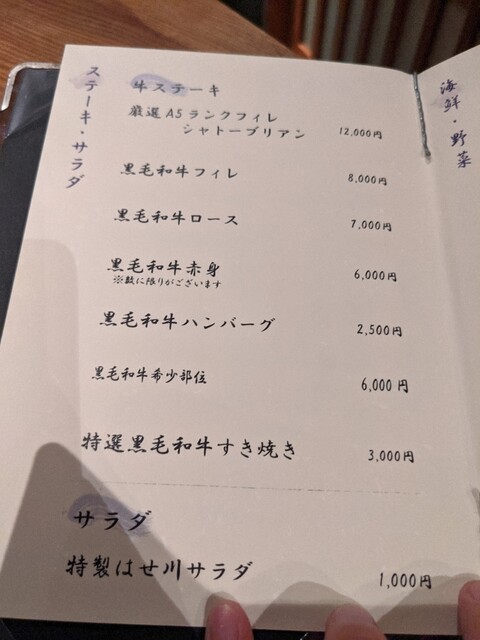 ステーキ・サラダ
牛ステーキ
厳選A5ランクフィレ
シャトーブリアン 12,000円
黒毛和牛フィレ 8,000円
黒毛和牛ロース 7,000円
黒毛和牛赤身 6,000円
※数に限りがございます
黒毛和牛ハンバーグ 2,500円
黒毛和牛希少部位 6,000円
特選黒毛和牛すき焼き 3,000円
サラダ
特製はせ川サラダ 1,000円
海鮮・野菜